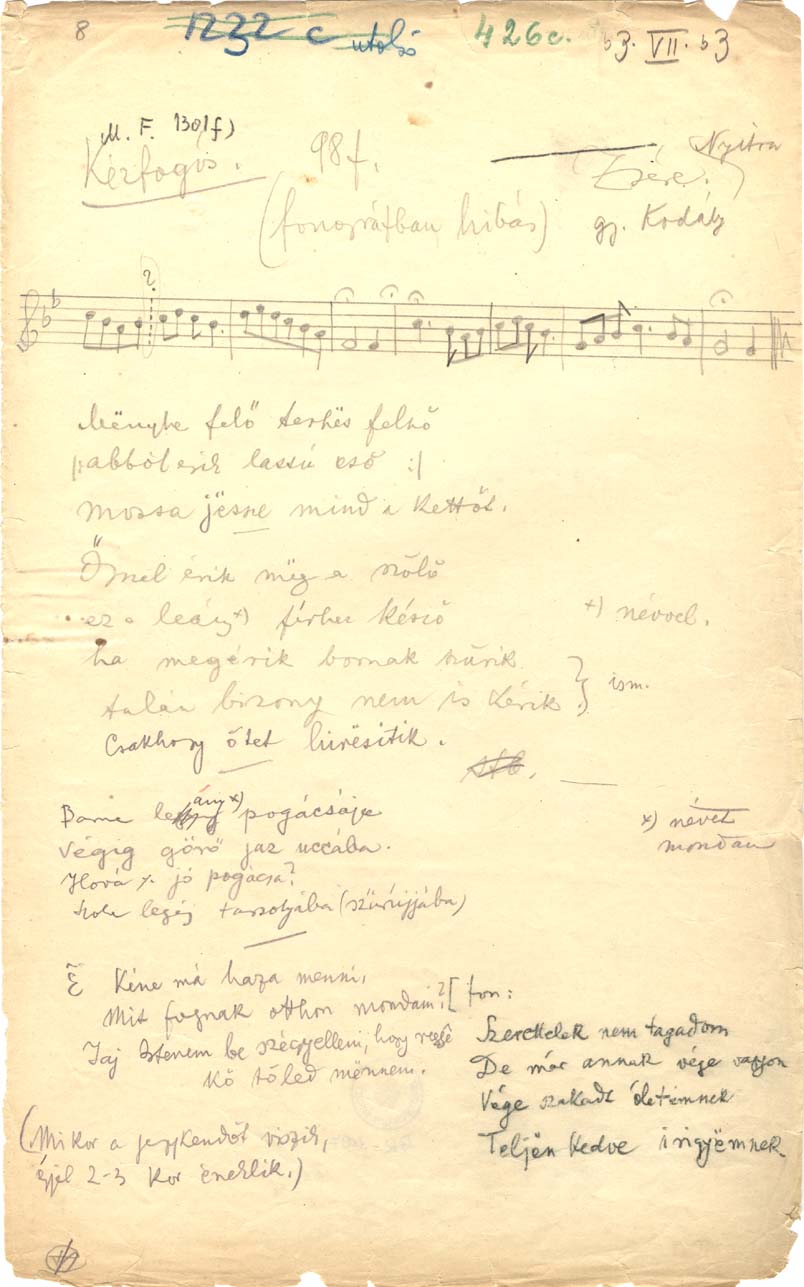 8 1232 c utolsó 426c. b3. VII. b3
M. F. 1301f)
Kézfogós. 98f. Nyitra
Zsére.
(fonográfban hibás) gy. Kodály
?
Mënybe felő terhës felhő
|: abból esik lassú eső :|
mossa jësne mind a kettőt.
Őszvel érik mëg a szőlő
ez a leány x) férhez késző x) névvel.
ha megérik bornak szűrik
talán bizony nem is kérik } ism.
Csakhogy őtet hírësitik.
stb.
Barna leány x) pogácsája x) névet
Végig görő jaz uccába. mondan
Hová x. jó pogácsa?
legéj tarsolyába (szűrújjába)
Kéne má haza menni,
Mit fognak otthon mondani? [fon:
Jaj Istenem be szégyellem, hogy
Kő tőled mënnem.
Szerettelek nem tagadom
De már annak vége vagyon
Vége szakadt életemnek
Teljën kedve irigyëmnek
(Mikor a jegykendőt viszik,
éjjel 2-3 kor éneklik.)